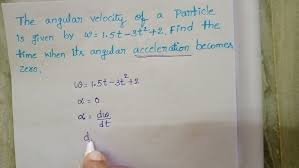 The angular velocity of a Particle
is given by ω = 1.5t - 3t² + 2. Find the
time when its angular acceleration becomes
zero.
ω = 1.5t - 3t² + 2
α = 0
α = dω/dt
d